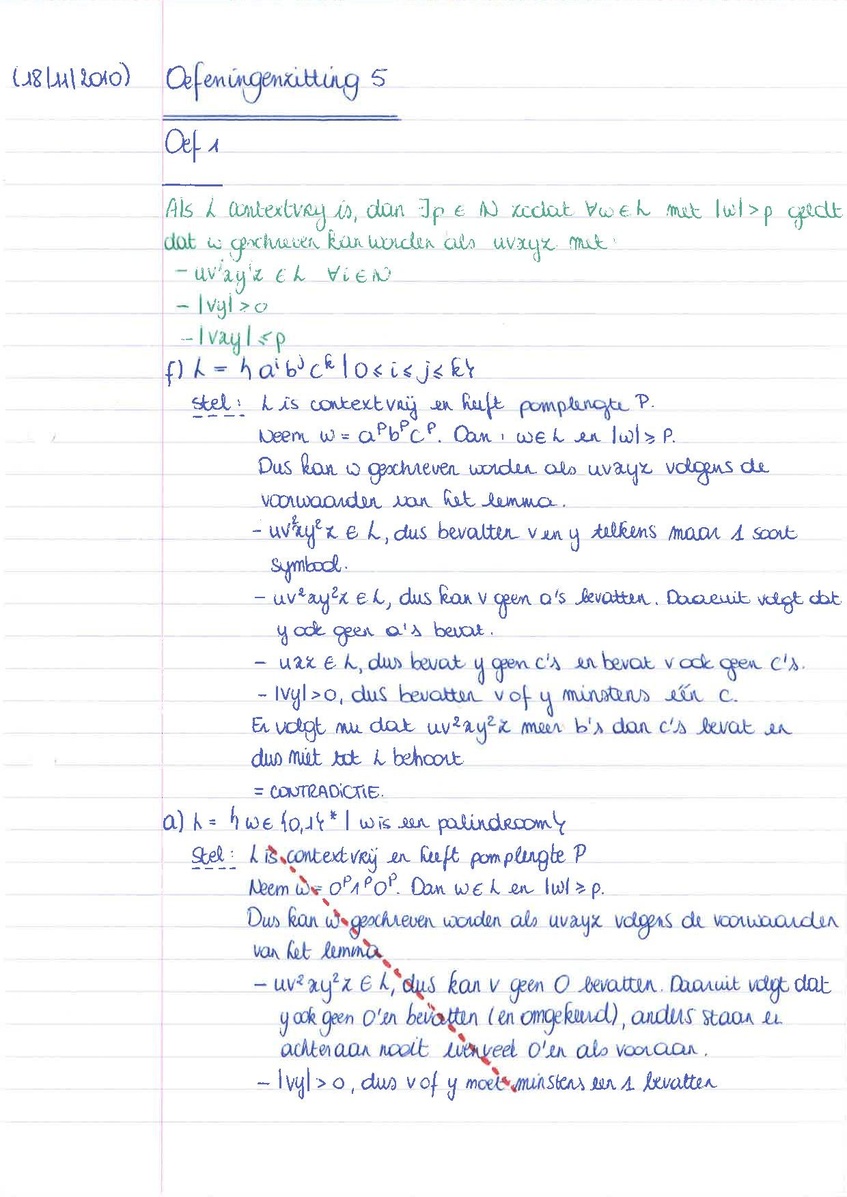 (18/11/2010) Oefeningenzitting 5
Oef 1
Als L contextvrij is, dan ∃p ∈ ℕ zodat ∀w∈L met |w|>p geldt
dat w geschreven kan worden als uvxyz met:
- uvⁱxyⁱz ∈ L ∀i∈ℕ
- |vy|>0
- |vxy|≤p
f) L = {aⁱbʲcᵏ | 0≤i≤j≤k}
Stel: L is contextvrij en heeft pomplengte P.
Neem w = aᴾbᴾcᴾ. Dan: w∈L en |w|≥P.
Dus kan w geschreven worden als uvxyz volgens de
voorwaarden van het lemma.
- uv²xy²z ∈ L, dus bevatten v en y telkens maar 1 soort
symbool.
- uv²xy²z ∈ L, dus kan v geen a's bevatten. Daaruit volgt dat
y ook geen a's bevat.
- uxz ∈ L, dus bevat y geen c's en bevat v ook geen c's.
- |vy|>0, dus bevatten v of y minstens één c.
Er volgt nu dat uv²xy²z meer b's dan c's bevat en
dus niet tot L behoort
= CONTRADICTIE.
a) L = {w∈{0,1}* | w is een palindroom}
Stel: L is contextvrij en heeft pomplengte P
Neem w = 0ᴾ1ᴾ0ᴾ. Dan w∈L en |w|≥p.
Dus kan w geschreven worden als uvxyz volgens de voorwaarden
van het lemma
- uv²xy²z ∈ L, dus kan v geen 0 bevatten. Daaruit volgt dat
y ook geen 0'en bevatten (en omgekeerd), anders staan er
achteraan nooit evenveel 0'en als vooraan.
- |vy|>0, dus v of y moet minstens een 1 bevatten